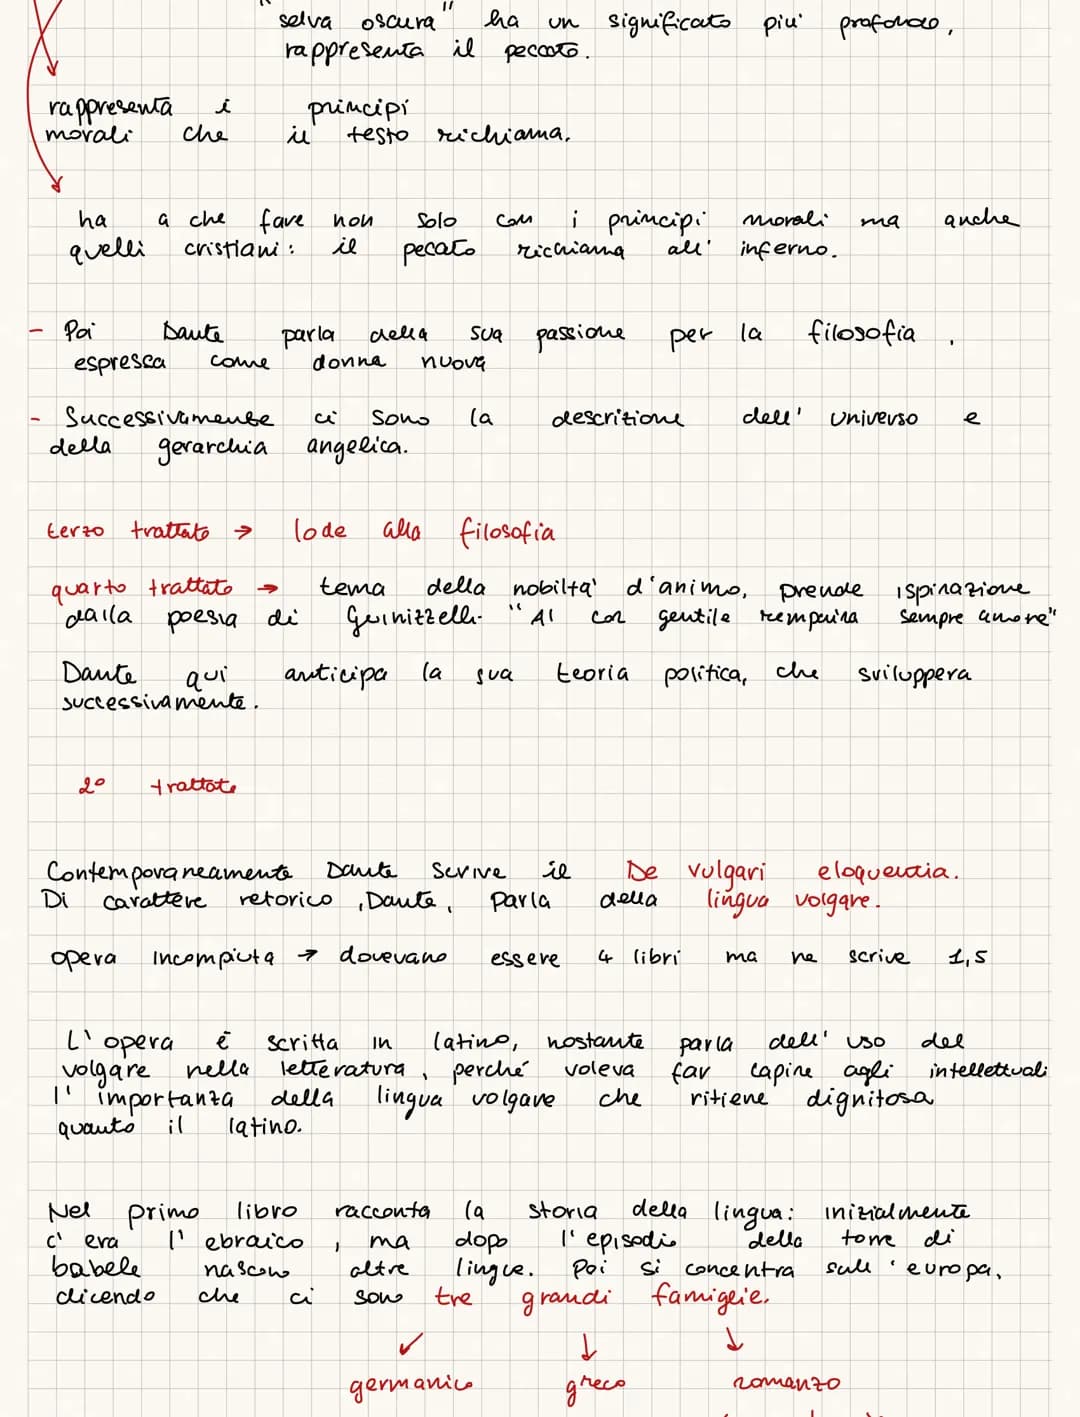 "selva oscura" ha un significato piu' profondo,
rappresenta il peccato.
rappresenta i principi
morali che il testo richiama.
ha a che fare non solo con i principi morali ma anche
quelli cristiani: il pecato richiama all' inferno.
- Poi Dante parla della sua passione per la filosofia,
espressa come donna nuova
- Successivamente ci sono la descrizione dell' universo e
della gerarchia angelica.
terzo trattato → lode alla filosofia
quarto trattato → tema della nobiltà' d'animo, prende ispirazione
dalla poesia di Guinizzelli- "Al cor gentile rempaira sempre amore"
Dante qui anticipa la sua teoria politica, che sviluppera
successivamente.
2° trattato
Contemporaneamente Dante scrive il De vulgari eloquentia.
Di carattere retorico, Dante, parla della lingua volgare.
opera incompiuta → dovevano essere 4 libri ma ne scrive 1,5
L'opera è scritta in latino, nostante parla dell' uso del
volgare nella letteratura, perché voleva far capire agli intellettuali
l'importanza della lingua volgare che ritiene dignitosa
quanto il latino.
Nel primo libro racconta la storia della lingua: inizialmente
c'era l'ebraico, ma dopo l'episodio della torre di
babele nascono altre lingue. Poi si concentra sull'europa,
dicendo che ci sono tre grandi famiglie.
germanico greco romanzo